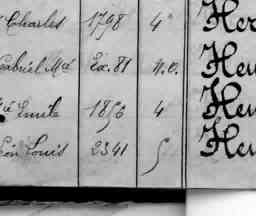 Charles 1798 4° Her
Gabriel Mcl Ex. 81 n.o. Heu
Emile 1856 4 Heu
Léon Louis 2341 5 Heu